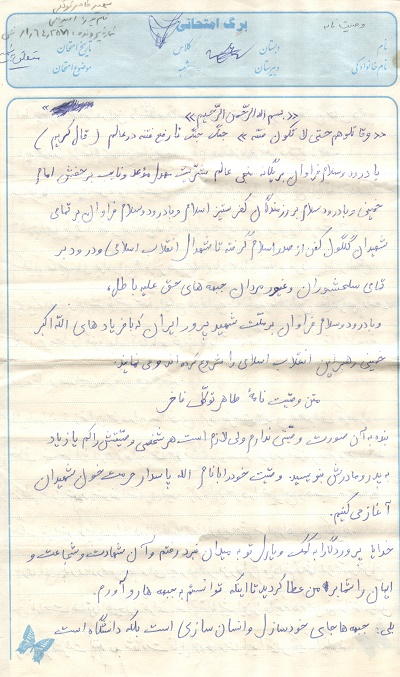 وصیت نامه
برگ امتحانی
نام
نام خانوادگی
دبستان
دبیرستان
کلاس
شعبه
تاریخ امتحان
موضوع امتحان
«بسم الله الرحمن الرحیم»
«وقاتلوهم حتی لا تکون فتنه» جنگ جنگ تا رفع فتنه در عالم (قرآن کریم)
با درود و سلام فراوان بر یگانه منجی عالم بشریت مهدی موعود و نایب بر حقش امام
خمینی و با درود و سلام بر رزمندگان کفر ستیز اسلام و با درود و سلام فراوان بر تمامی
شهیدان گلگون کفن از صدر اسلام گرفته تا شهدای انقلاب اسلامی و درود بر
تمامی سلحشوران و غیور مردان جبهه های حق علیه باطل،
و با درود و سلام فراوان بر ملت شهید پرور ایران که با فریاد های الله اکبر
خمینی رهبر این انقلاب اسلامی را شروع کرده اند و می نمایند.
متن وصیت نامهٔ طاهر توکلی فاخر
بنده به آن صورت وصیتی ندارم ولی لازم است هر شخصی وصیتش را کم یا زیاد
به پدر و مادرش بنویسید. وصیت خود را با نام الله پاسدار حرمت خون شهیدان
آغاز می کنیم.
خدایا پروردگارا به کمک و یاری تو به میدان نبرد رفتم و آن شهادت و شجاعت و
ایمان را شما بر من عطا کردید تا اینکه توانستم به جبهه ها رو آورم.
بلی: جبهه ها جای خود سازی و انسان سازی است بلکه دانشگاه است